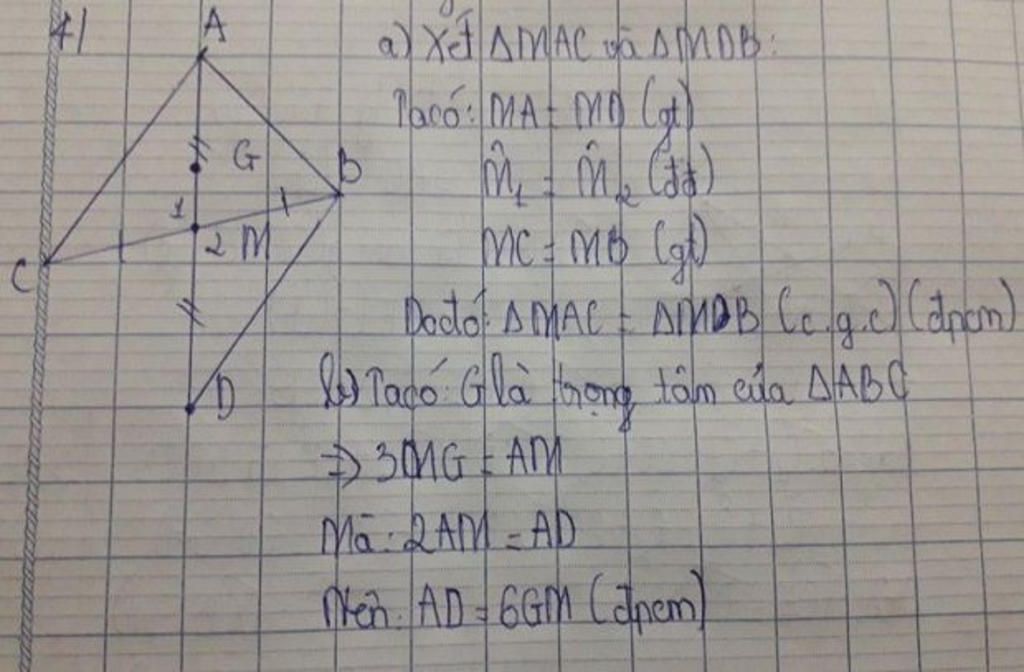 4/
A
a) Xét ΔMAC và ΔMDB:
Ta có: MA = MD (gt)
G
B
M̂₁ = M̂₂ (đđ)
1
2 M
MC = MB (gt)
C
Do đó: ΔMAC = ΔMDB (c.g.c) (đpcm)
D
b) Ta có: G là trọng tâm của ΔABC
=> 3MG = AM
Mà: 2AM = AD
Nên: AD = 6GM (đpcm)